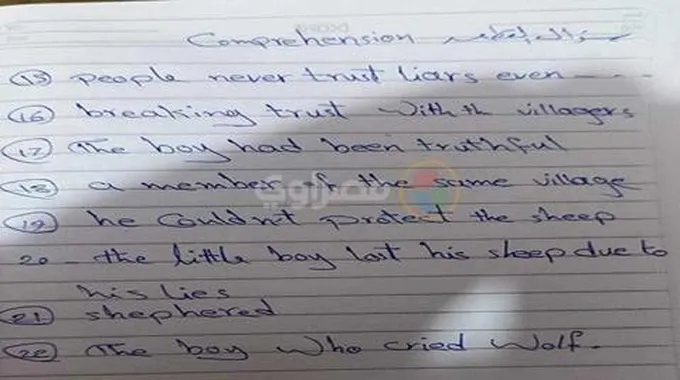 Comprehension سؤال القطعة
(15) people never trust liars even - - -
(16) breaking trust with th villagers
(17) The boy had been truthful
(18) a member of the same village
(19) he couldn't protect the sheep
20 - the little boy lost his sheep due to
his lies
(21) shephered
(22) The boy who cried wolf.
مصراوي